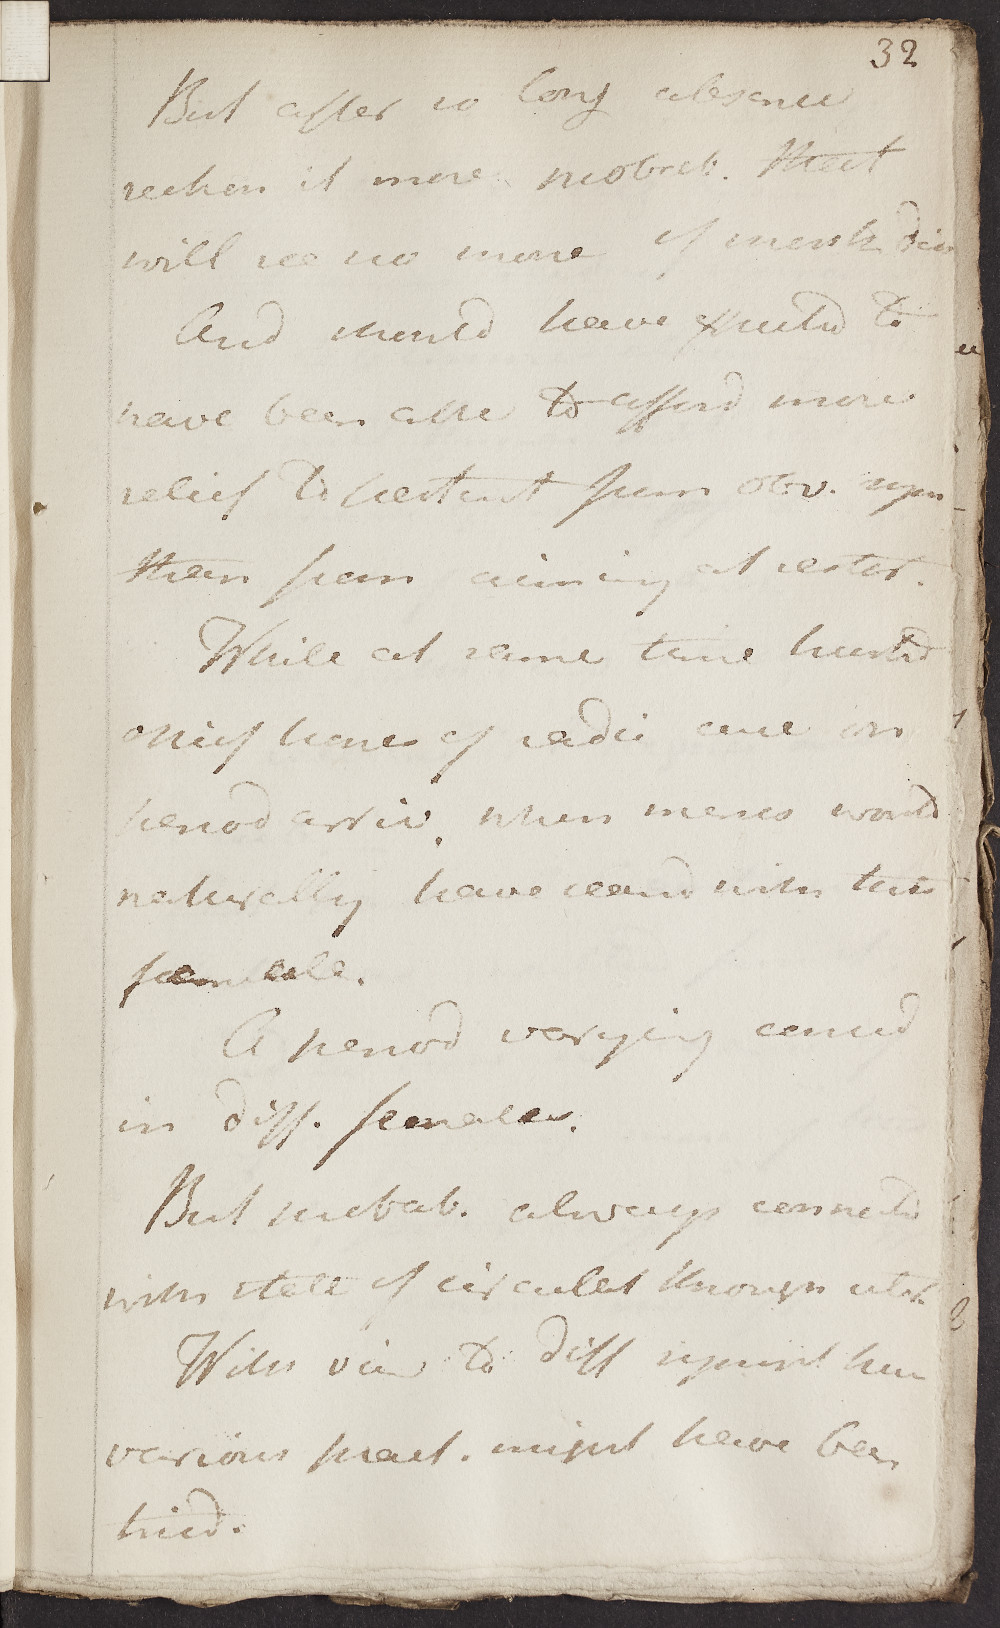 32
But after so long absence
reckon it more probab. that
will see no more of menst. dis
And should have expected to
have been able to afford more
relief to patient from obv. sym
than from aiming at restor.
While at same time trusted
chief hope of radic cure on
period arriv. when menses would
naturally have ceased with this
female.
A period varying consid
in diff. females.
But probab. always connected
with state of circulat through uter.
With view to diff symt here
various pract. might have been
tried.